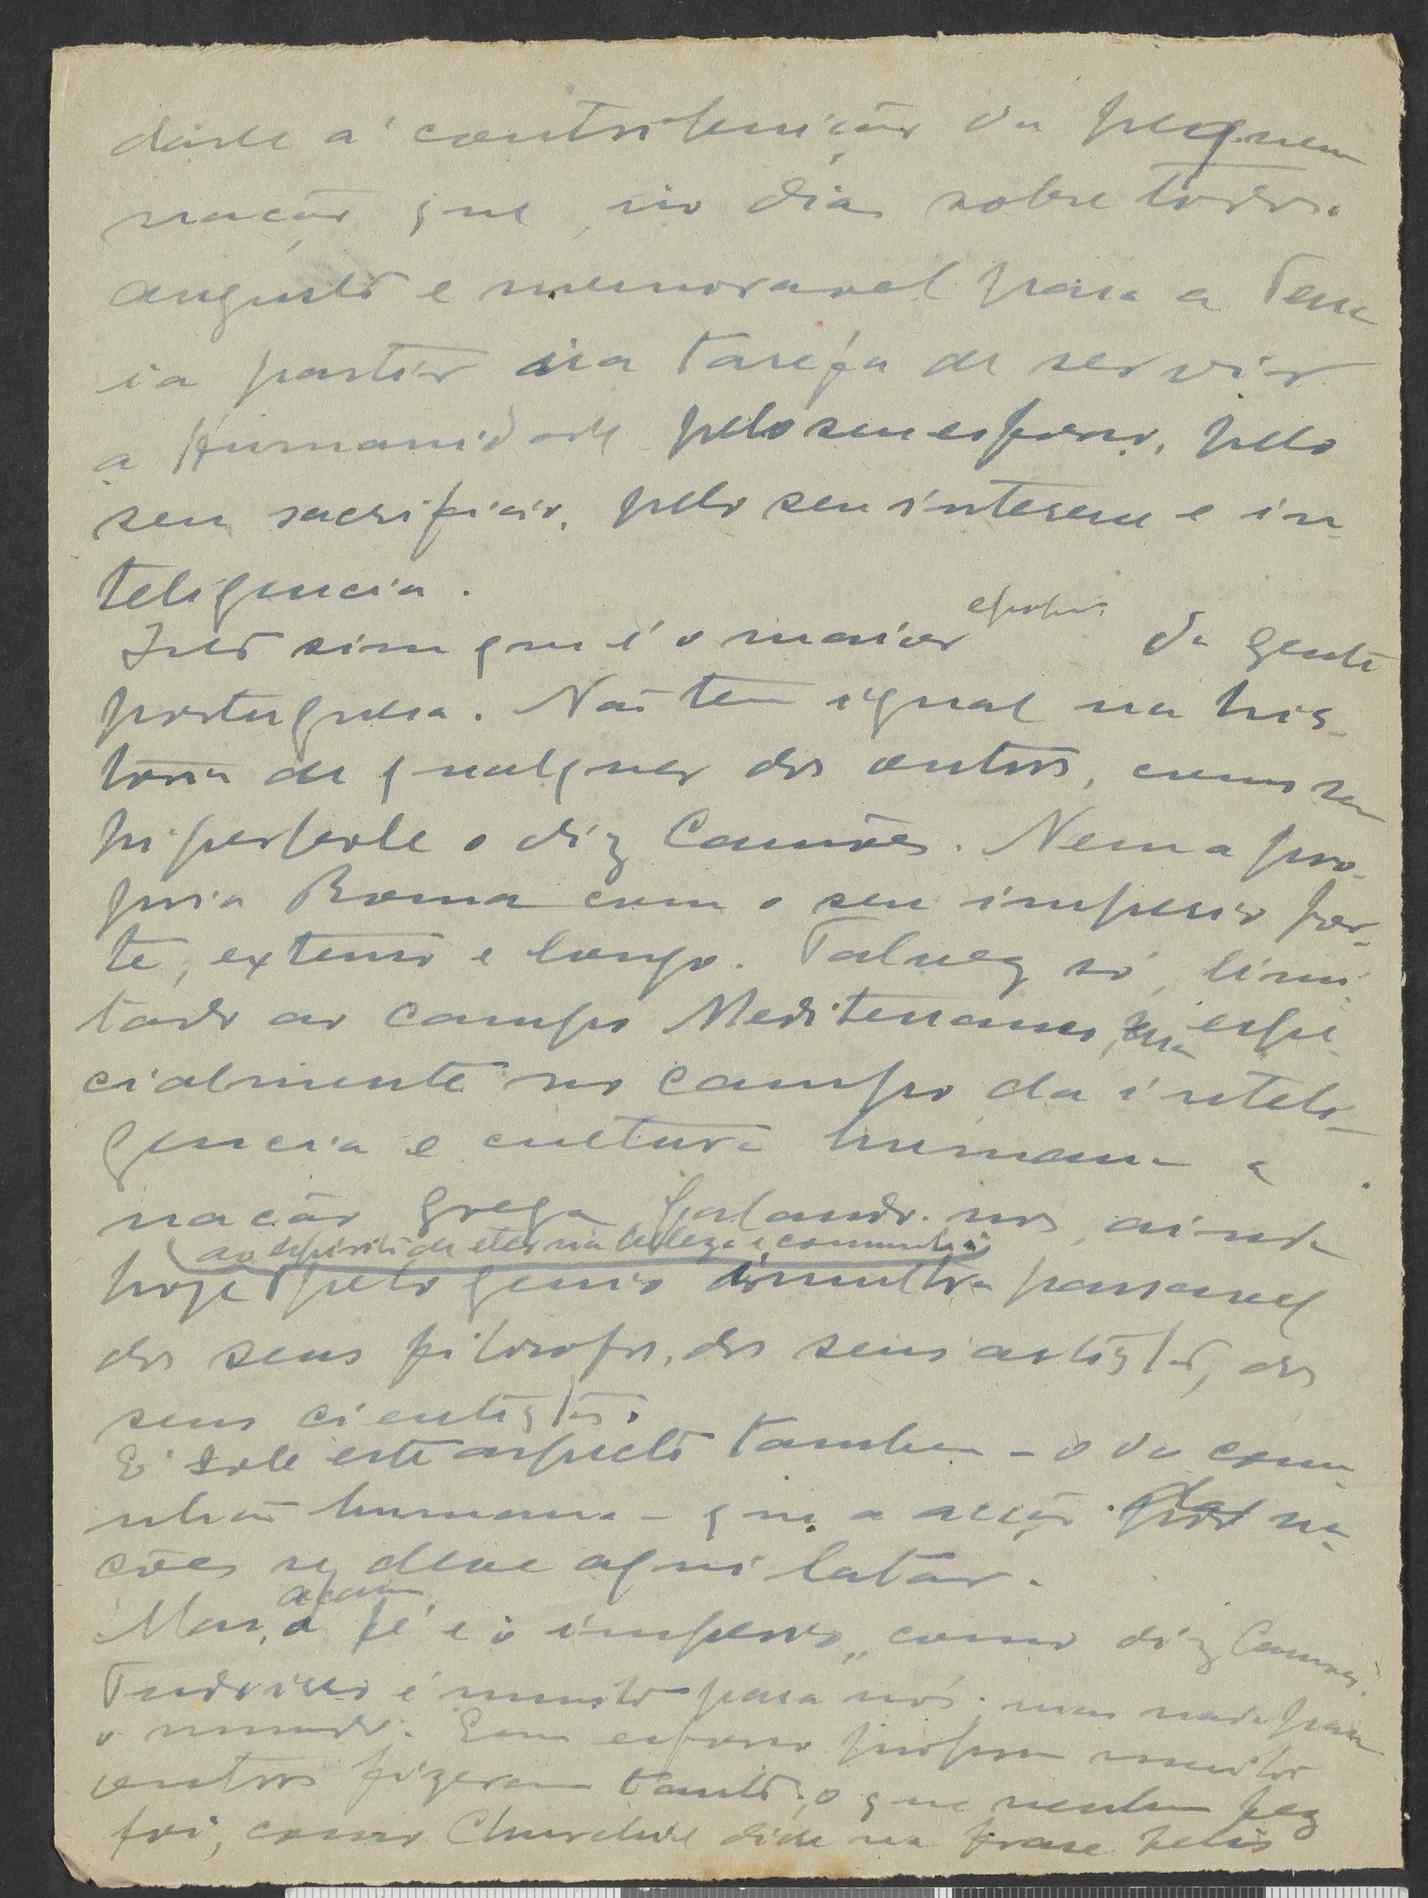 dade a contribuição da pequena
nação que, no dia sobre todos
augusto e memoravel para a Terra
ia partir na tarefa de servir
a Humanidade pelo seu esforço, pelo
seu sacrificio, pelo seu interesse e in-
teligencia.
Isso sim que é o maior da gente
portuguesa. Não tem igual na his-
toria de qualquer dos outros, como sem
hiperbole o diz Camões. Nem a pro-
pria Roma com o seu imperio for-
te, extenso e longo. Talvez só, limi-
tado ao campo Mediterraneo, e espe-
cialmente no campo da inteli-
gencia e cultura humana a
nação grega falando-nos ainda
ao espirito de eterna beleza e comunhão
hoje pelo genio inultra passavel
dos seus filosofos, dos seus artistas, dos
seus cientistas.
É sob este aspecto tambem - o da comu-
nhão humana - que a acção das na-
ções se deve aquilatar.
Mas, a fé e o imperio, como diz Camões.
Tudo isso é muito para nós, mas nada para
o mundo. Com esforço proprio muitos
outros fizeram tanto; o que nenhum fez
foi, como Churchill disse na frase feliz